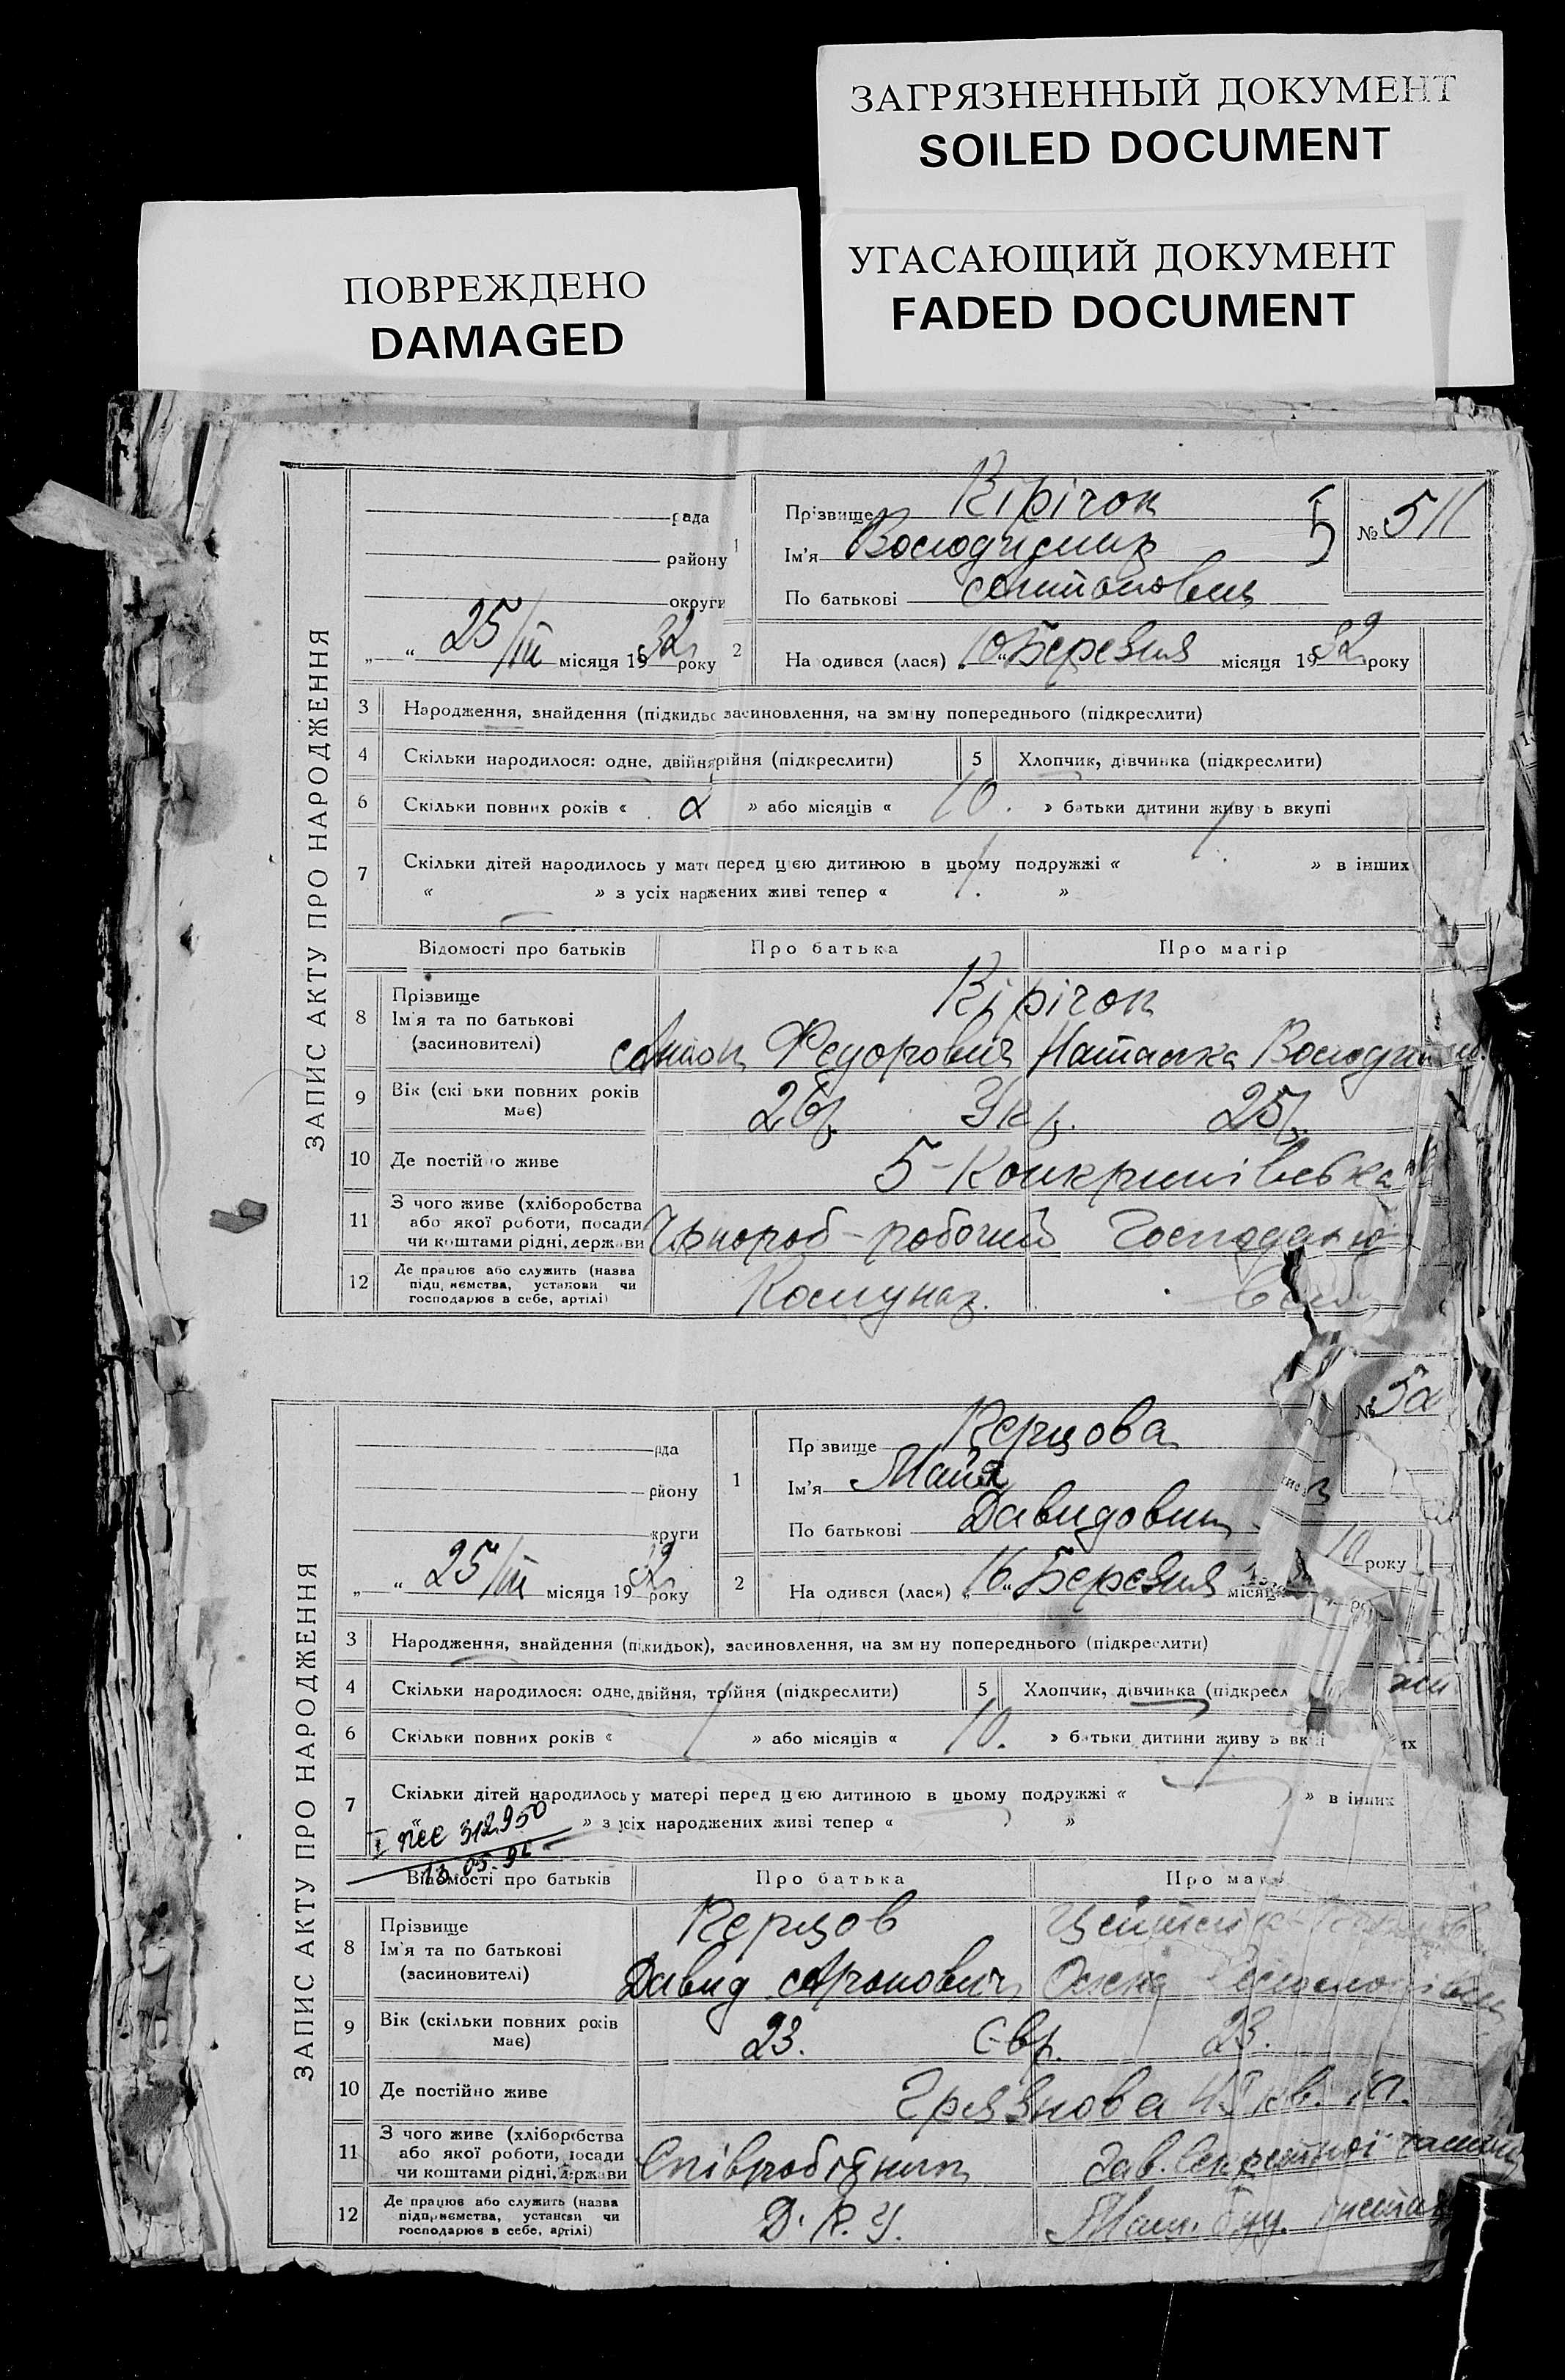 ЗАГРЯЗНЕННЫЙ ДОКУМЕНТ
SOILED DOCUMENT
УГАСАЮЩИЙ ДОКУМЕНТ
FADED DOCUMENT
ПОВРЕЖДЕНО
DAMAGED
ЗАПИС АКТУ ПРО НАРОДЖЕННЯ
рада
району
округи
„ “ 25/III місяця 1932 року
1
Прізвище Кірічок
Ім'я Володимир
По батькові Антонович
№ 511
2 На одився (лася) „10“ Березня місяця 1932 року
3 Народження, знайдення (підкидьо засиновлення, на зміну попереднього (підкреслити)
4 Скільки народилося: одне, двійня рійня (підкреслити) 5 Хлопчик, дівчинка (підкреслити)
6 Скільки повних років « 2 » або місяців « 10. » батьки дитини живу ь вкупі
7 Скільки дітей народилось у мате перед цією дитиною в цьому подружжі « » в інших
« » з усіх нар жених живі тепер « 1. »
Відомості про батьків Про батька Про матір
8 Прізвище
Ім'я та по батькові
(засиновителі)
Кірічок
Антон Федорович Наталка Володим
9 Вік (скі ьки повних років
має)
26р. Укр. 25р.
10 Де постійно живе
11 З чого живе (хліборобства
або якої роботи, посади
чи коштами рідні, держави
Чорнороб-робочий
12 Де працює або служить (назва
підприємства, установи чи
господарює в себе, артілі)
Комунаг.
ЗАПИС АКТУ ПРО НАРОДЖЕННЯ
ада
району
круги
„ “ 25/III місяця 1932 року
1
Пр звище Керцова
Ім'я Майя
По батькові Давидович
№ 52
2 На одився (лася) „16“ Березня місяця
року
3 Народження, знайдення (підкидьок), засиновлення, на зм ну попереднього (підкреслити)
4 Скільки народилося: одне, двійня, трійня (підкреслити) 5 Хлопчик, дівчинка (підкресл
6 Скільки повних років « 1 » або місяців « 10. » батьки дитини живу ь вк
7 Скільки дітей народилось у матері перед цією дитиною в цьому подружжі « » в інших
» з усіх народжених живі тепер « »
312950
Відомості про батьків Про батька Про мат
8 Прізвище
Ім'я та по батькові
(засиновителі)
Керцов
Давид Аронович
9 Вік (скільки повних років
має)
23. Євр. 23.
10 Де постійно живе
Грязнова кв.
11 З чого живе (хліборобства
або якої роботи, посади
чи коштами рідні, держави
Співробітник Зав. Секретної
12 Де працює або служить (назва
підприємства, установи чи
господарює в себе, артілі)
Д.П.У. Маш. буд.